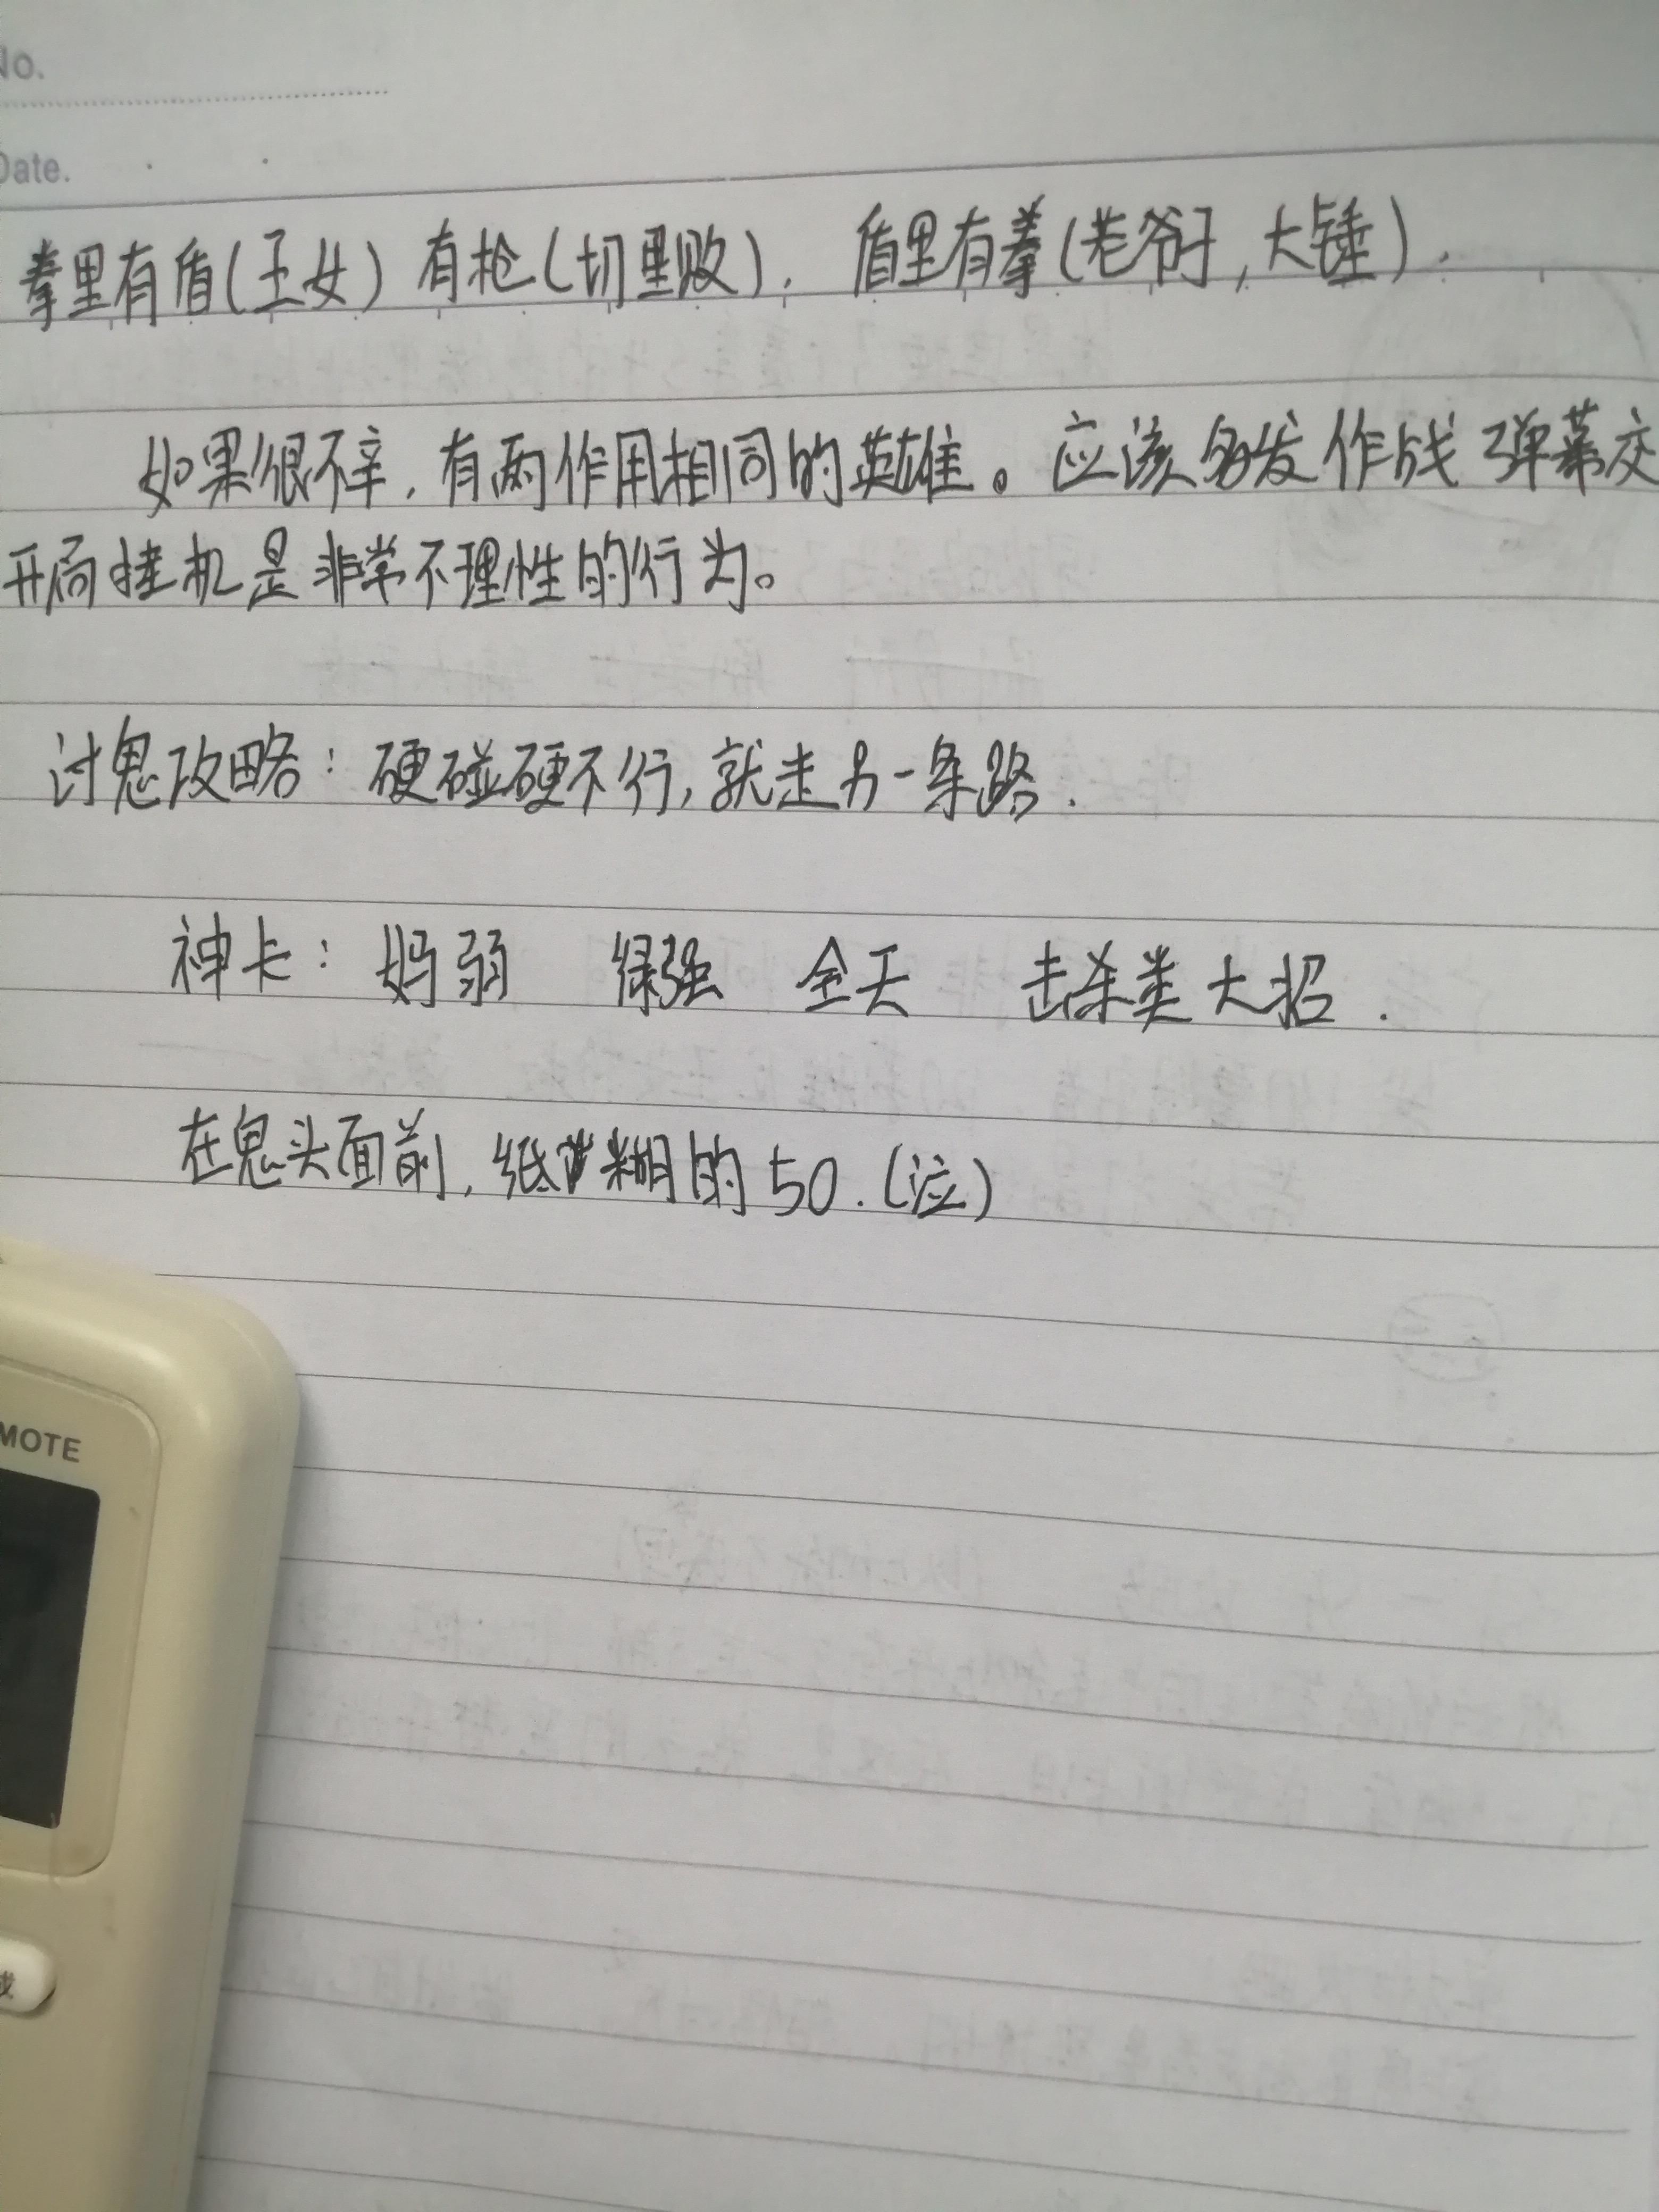 No.
Date.
拳里有盾(王女)有枪(切里败). 盾里有拳(老爷子,大锤).
如果很不幸,有两作用相同的英雄。应该多发作战弹幕交
开局挂机是非常不理性的行为。
讨鬼攻略:硬碰硬不行,就走另一条路.
神卡:妈弱 绿强 全天 击杀类大招.
在鬼头面前,纸糊的50.(泣)
MOTE